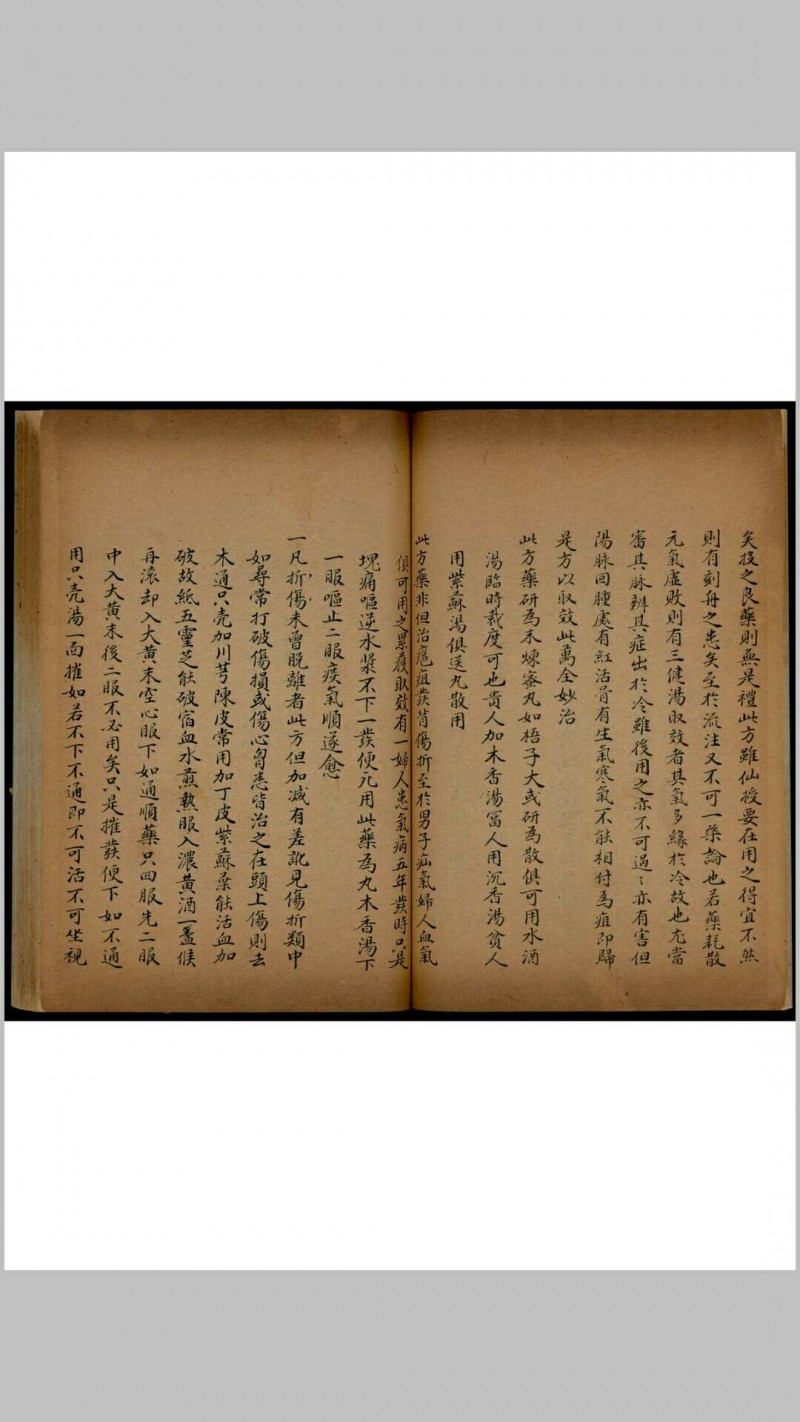 矣投之良藥則無是禮此方雖仙授要在用之得宜不然
則有刻舟之患矣至於流注又不可一藥論也若藥耗散
元氣虛敗則有三健湯取效者其氣多緣於冷故也尤當
審其脉辨其症出於冷雖後用之亦不可過〻亦有害但
陽脉回腫處有紅活骨有生氣寒氣不能相付為疽即歸
是方以取效此萬全妙治
此方藥研為末煉蜜丸如梧子大或研為散俱可用水酒
湯臨時裁度可也貴人加木香湯富人用沉香湯貧人
用紫蘇湯俱送丸散用
此方藥非但治癰疽發背傷折至於男子疝氣婦人血氣
俱可用之累獲取效有一婦人患氣病五年發時只是
塊痛嘔逆水漿不下一發便几用此藥為丸木香湯下
一服嘔止二服痰氣順遂愈
一凡折傷未曾脫離者此方但加減有差訛見傷折類中
如尋常打破傷損或傷心胷悉皆治之在頭上傷則去
木通只壳加川芎陳皮常用加丁皮紫蘇葉能活血加
破故紙五靈芝能破宿血水煎熱服入濃黃酒一盞候
再滚却入大黃末空心服下如通順藥只四服先二服
中入大黃末後二服不必用矣只是摧發便下如不通
用只壳湯一面摧如若不下不通即不可活不可坐視